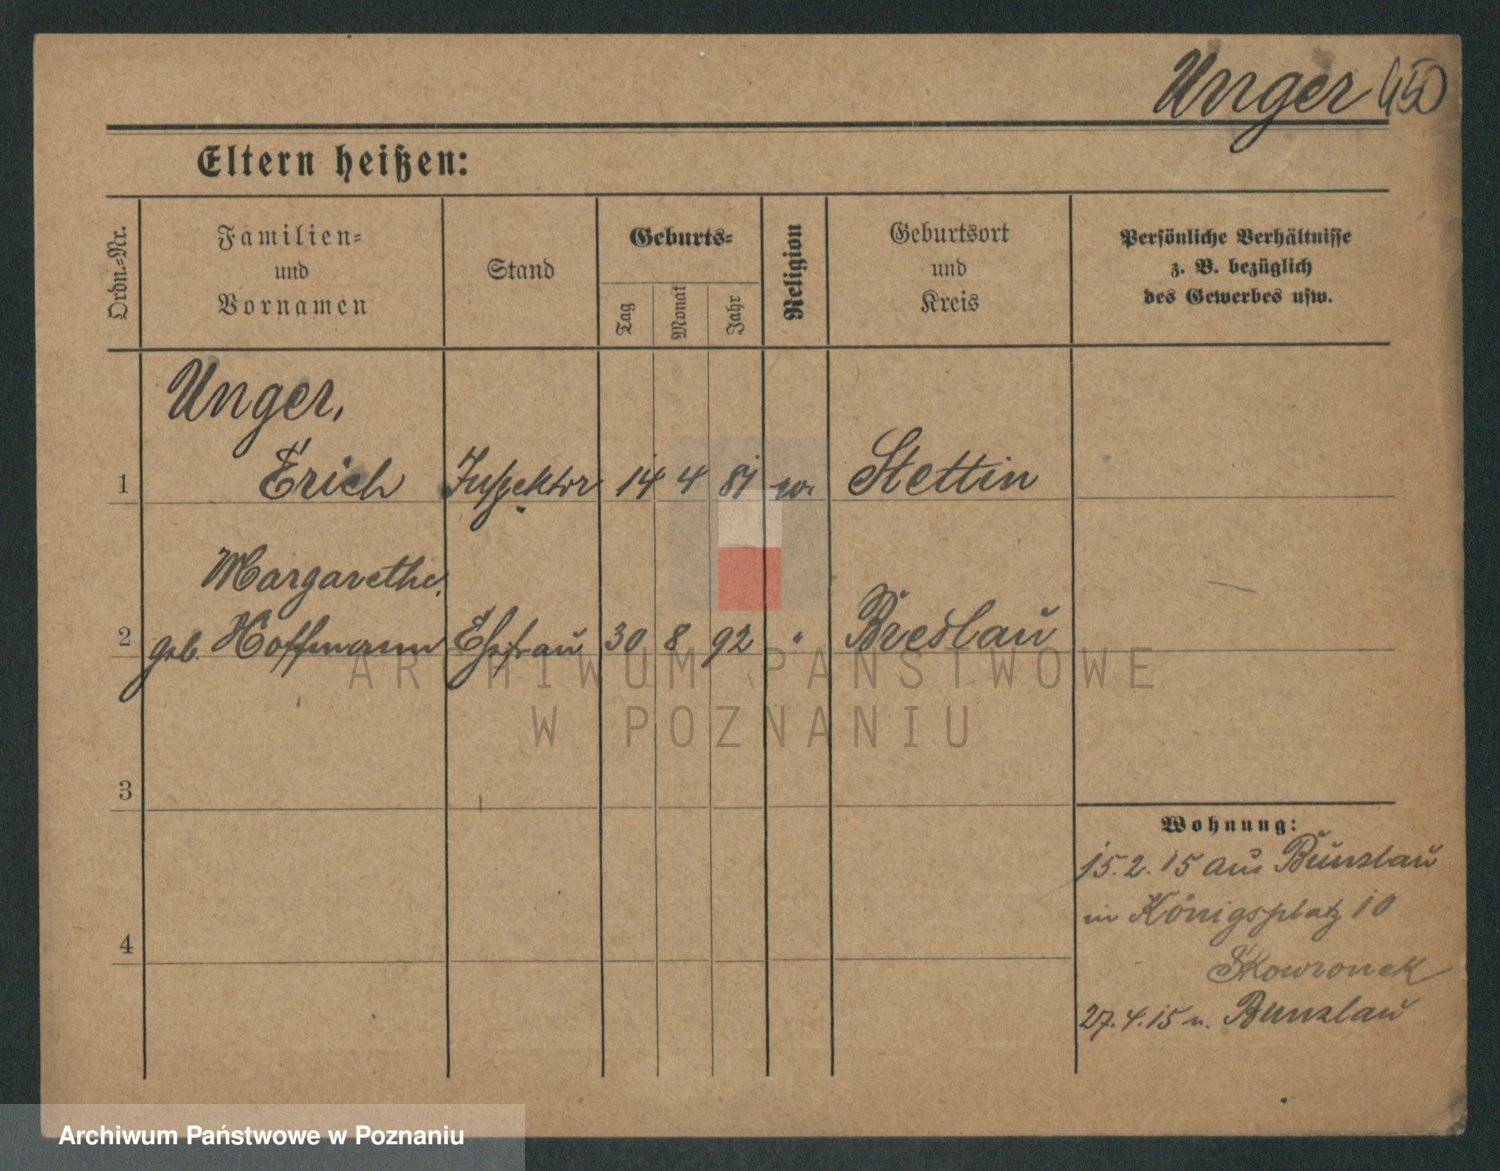 Unger 450
Eltern heißen:
Ordn.-Nr.
Familien-
und
Vornamen
Stand
Geburts-
Tag
Monat
Jahr
Religion
Geburtsort
und
Kreis
Persönliche Verhältnisse
z. B. bezüglich
des Gewerbes usw.
Unger,
1 Erich Inspektor 14 4 81 ev. Stettin
Margarethe,
2 geb. Hoffmann Ehefrau 30 8 92 " Breslau
3
4
Wohnung:
15.2.15 aus Bunzlau
in Königsplatz 10
Skowronek
27.4.15 n. Bunzlau
ARCHIWUM PAŃSTWOWE
W POZNANIU
Archiwum Państwowe w Poznaniu